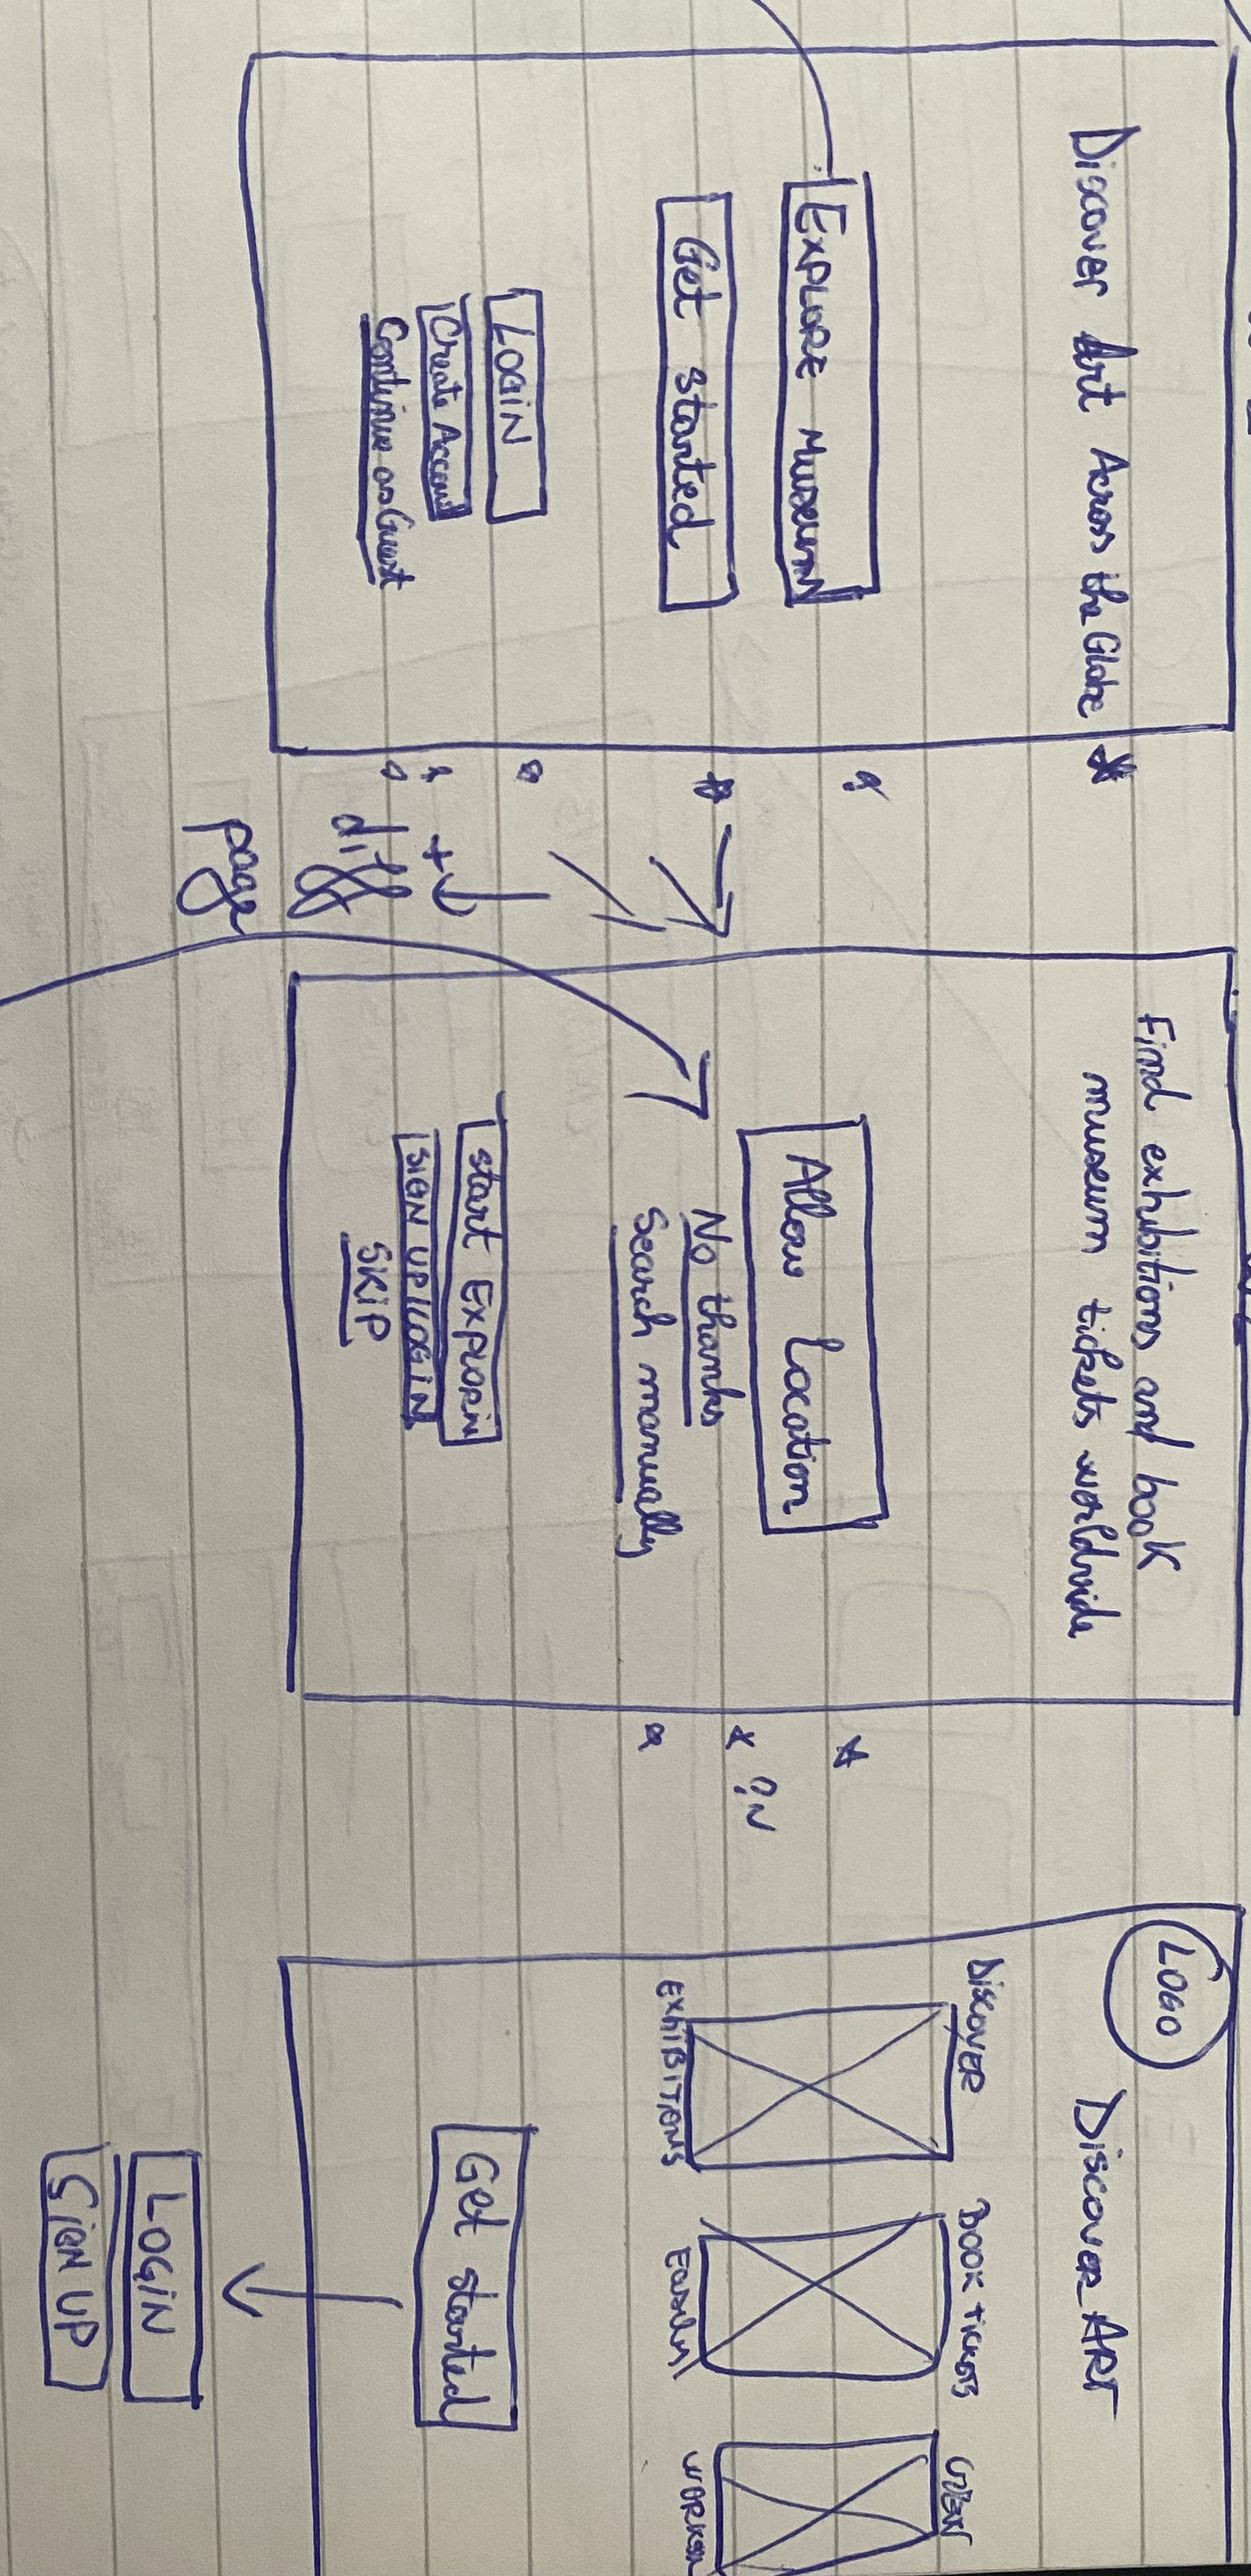 Discover Art Across the Globe
EXPLORE MUSEUM
Get started
LOGIN
Create Account
Continue as Guest
diff
page
Find exhibitions and book
museum tickets worldwide
Allow Location
No thanks
Search manually
start EXPLORIN
SIGN UP/LOGIN
SKIP
LOGO
Discover ART
DiscovER
EXHIBITIONS
BOOK tickets
Easily
Get started
LOGIN
SIGN UP